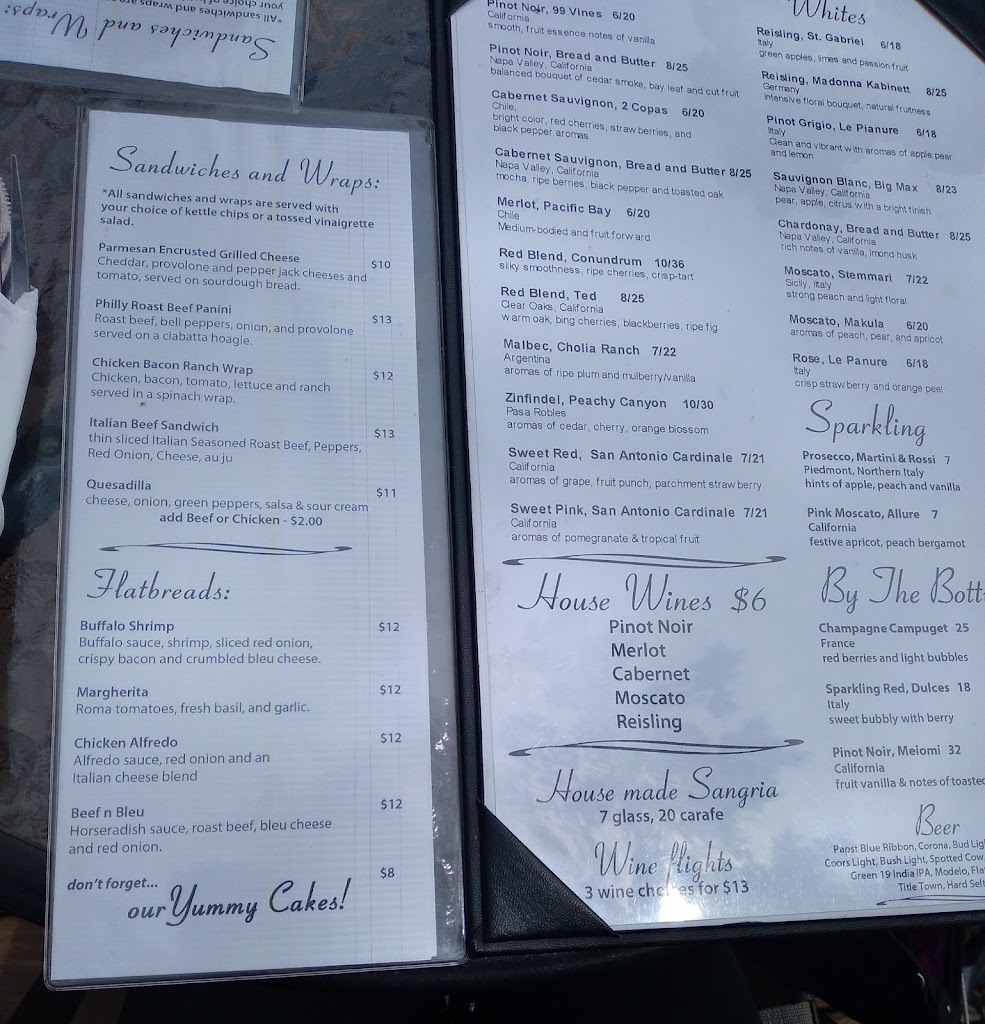 *All sandwiches and wraps are
your choice of
Sandwiches and Wraps:
Sandwiches and Wraps:
*All sandwiches and wraps are served with
your choice of kettle chips or a tossed vinaigrette
salad.
Parmesan Encrusted Grilled Cheese $10
Cheddar, provolone and pepper jack cheeses and
tomato, served on sourdough bread.
Philly Roast Beef Panini $13
Roast beef, bell peppers, onion, and provolone
served on a ciabatta hoagie.
Chicken Bacon Ranch Wrap $12
Chicken, bacon, tomato, lettuce and ranch
served in a spinach wrap.
Italian Beef Sandwich $13
thin sliced Italian Seasoned Roast Beef, Peppers,
Red Onion, Cheese, au ju
Quesadilla $11
cheese, onion, green peppers, salsa & sour cream
add Beef or Chicken - $2.00
Flatbreads:
Buffalo Shrimp $12
Buffalo sauce, shrimp, sliced red onion,
crispy bacon and crumbled bleu cheese.
Margherita $12
Roma tomatoes, fresh basil, and garlic.
Chicken Alfredo $12
Alfredo sauce, red onion and an
Italian cheese blend
Beef n Bleu $12
Horseradish sauce, roast beef, bleu cheese
and red onion.
don't forget... $8
our Yummy Cakes!
Pinot Noir, 99 Vines 6/20
California
smooth, fruit essence notes of vanilla
Pinot Noir, Bread and Butter 8/25
Napa Valley, California
balanced bouquet of cedar smoke, bay leaf and cut fruit
Cabernet Sauvignon, 2 Copas 6/20
Chile,
bright color, red cherries, strawberries, and
black pepper aromas
Cabernet Sauvignon, Bread and Butter 8/25
Napa Valley, California
mocha, ripe berries, black pepper and toasted oak
Merlot, Pacific Bay 6/20
Chile
Medium-bodied and fruit forward
Red Blend, Conundrum 10/36
silky smoothness, ripe cherries, crisp-tart
Red Blend, Ted 8/25
Clear Oaks, California
warm oak, bing cherries, blackberries, ripe fig
Malbec, Cholia Ranch 7/22
Argentina
aromas of ripe plum and mulberry/vanilla
Zinfindel, Peachy Canyon 10/30
Pasa Robles
aromas of cedar, cherry, orange blossom
Sweet Red, San Antonio Cardinale 7/21
California
aromas of grape, fruit punch, parchment strawberry
Sweet Pink, San Antonio Cardinale 7/21
California
aromas of pomegranate & tropical fruit
House Wines $6
Pinot Noir
Merlot
Cabernet
Moscato
Reisling
House made Sangria
7 glass, 20 carafe
Wine flights
3 wine choices for $13
Whites
Reisling, St. Gabriel 6/18
Italy
green apples, limes and passion fruit
Reisling, Madonna Kabinett 8/25
Germany
intensive floral bouquet, natural fruitness
Pinot Grigio, Le Pianure 6/18
Italy
Clean and vibrant with aromas of apple pear
and lemon
Sauvignon Blanc, Big Max 8/23
Napa Valley, California
pear, apple, citrus with a bright finish
Chardonay, Bread and Butter 8/25
Napa Valley, California
rich notes of vanilla, lmond husk
Moscato, Stemmari 7/22
Sicily, Italy
strong peach and light floral
Moscato, Makula 6/20
aromas of peach, pear, and apricot
Rose, Le Panure 6/18
Italy
crisp strawberry and orange peel
Sparkling
Prosecco, Martini & Rossi 7
Piedmont, Northern Italy
hints of apple, peach and vanilla
Pink Moscato, Allure 7
California
festive apricot, peach bergamot
By The Bott
Champagne Campuget 25
France
red berries and light bubbles
Sparkling Red, Dulces 18
Italy
sweet bubbly with berry
Pinot Noir, Meiomi 32
California
fruit vanilla & notes of toasted
Beer
Papst Blue Ribbon, Corona, Bud Ligh
Coors Light, Bush Light, Spotted Cow
Green 19 India IPA, Modelo, Fla
Title Town, Hard Selt